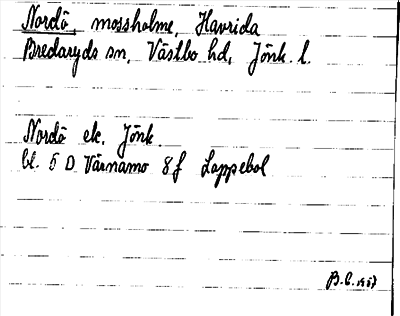 Nordö, mossholme, Havrida
Bredaryds sn, Västbo hd, Jönk. l.
Nordö ek. Jönk.
bl. 5 D Värnamo 8 f Loppebol
B.C. 1957